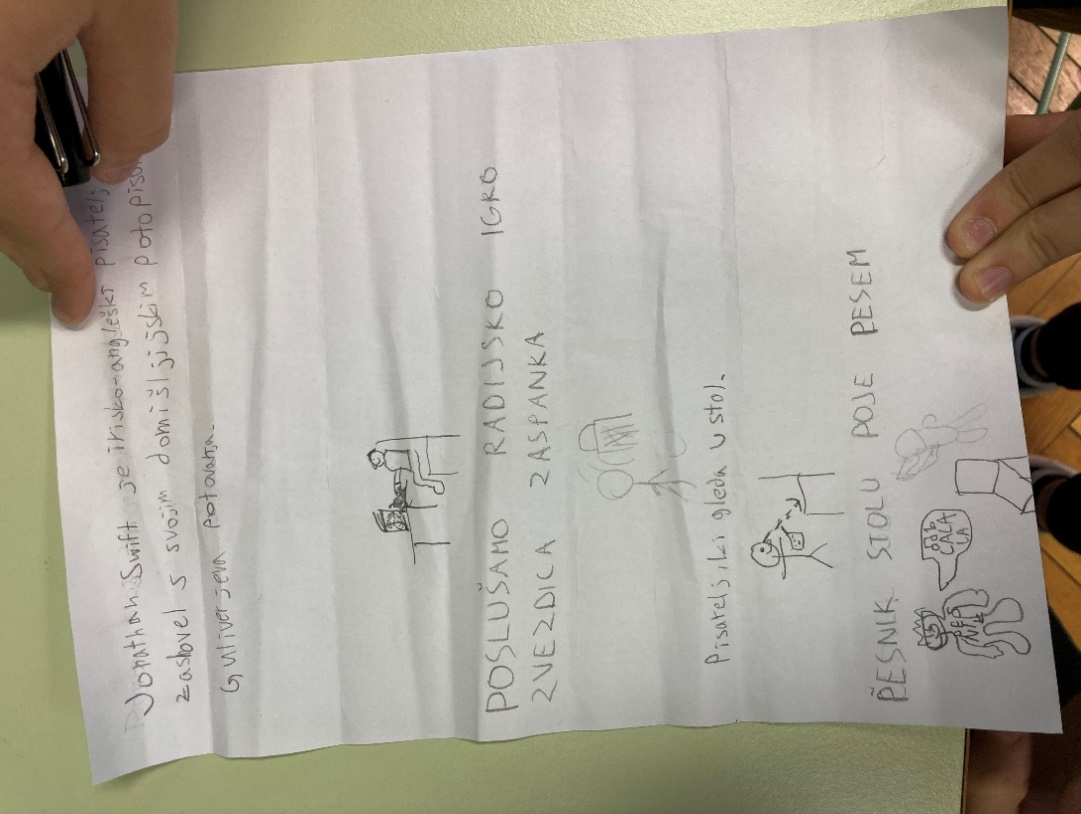 Jonathan Swift je irisko-angleški pisatelj,
zaslovel s svojim domišljijskim potopisom
Guliverjeva potovanja.
POSLUŠAMO RADIJSKO IGRO
ZVEZDICA ZASPANKA
Pisatelj, ki gleda v stol.
PESNIK STOLU POJE PESEM
LALA
LA